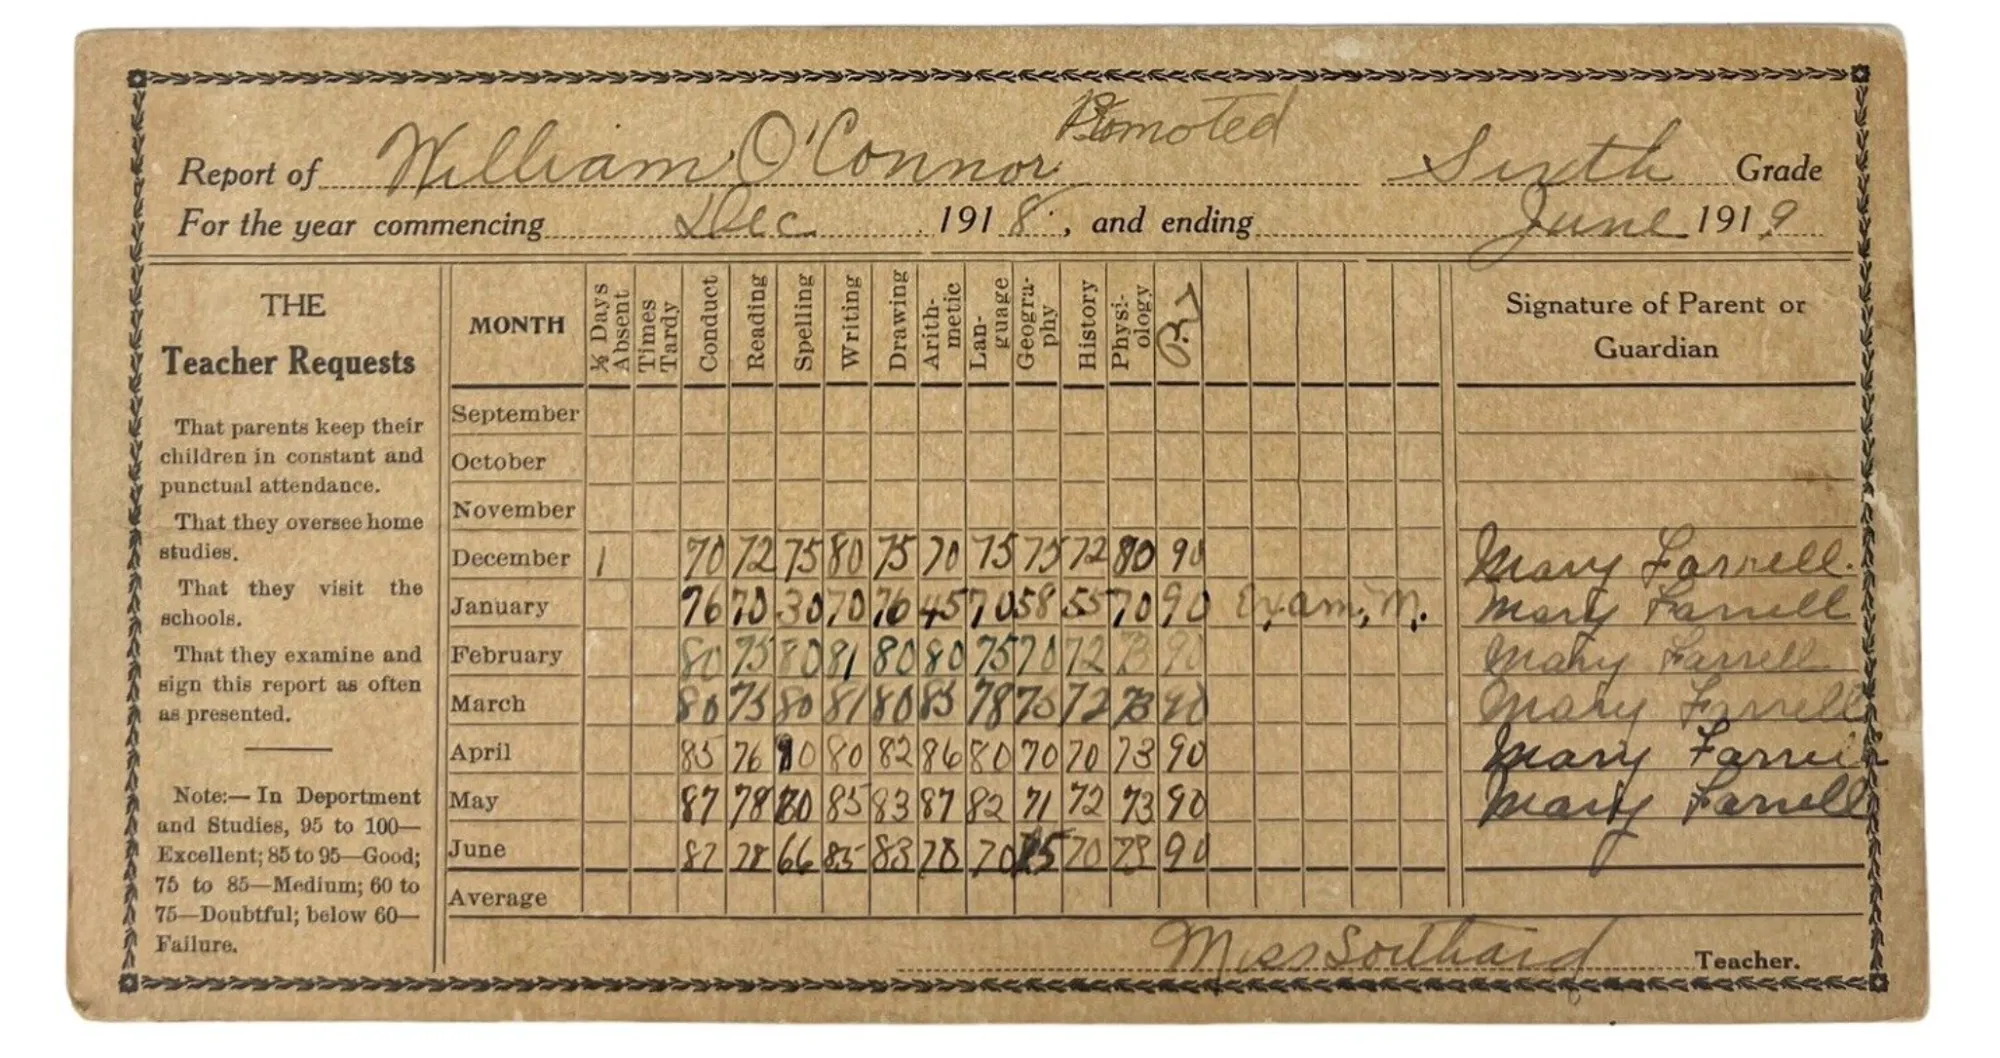 Promoted
Report of William O'Connor Sixth Grade
For the year commencing Dec 1918, and ending June 1919
THE
Teacher Requests
That parents keep their
children in constant and
punctual attendance.
That they oversee home
studies.
That they visit the
schools.
That they examine and
sign this report as often
as presented.
Note:— In Deportment
and Studies, 95 to 100—
Excellent; 85 to 95—Good;
75 to 85—Medium; 60 to
75—Doubtful; below 60—
Failure.
MONTH ½ Days Absent Times Tardy Conduct Reading Spelling Writing Drawing Arith-metic Lan-guage Geogra-phy History Physi-ology Signature of Parent or Guardian
September
October
November
December 1 70 72 75 80 75 70 75 75 72 80 90 Mary Farrell.
January 76 70 30 70 76 45 70 58 55 70 90 Exam, M. Mary Farrell
February 80 75 80 81 80 80 75 70 72 73 90 Mary Farrell
March 80 75 80 81 80 85 78 75 72 73 90 Mary Farrell
April 85 76 80 82 86 80 70 70 73 90 Mary Farrell
May 87 78 80 85 83 87 82 71 72 73 90 Mary Farrell
June 87 78 66 85 83 78 70 70 73 90
Average
Miss Southard Teacher.